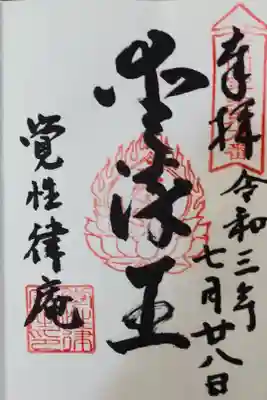 奉拝
令和三年
七月廿八日
愛染王
覚性律庵